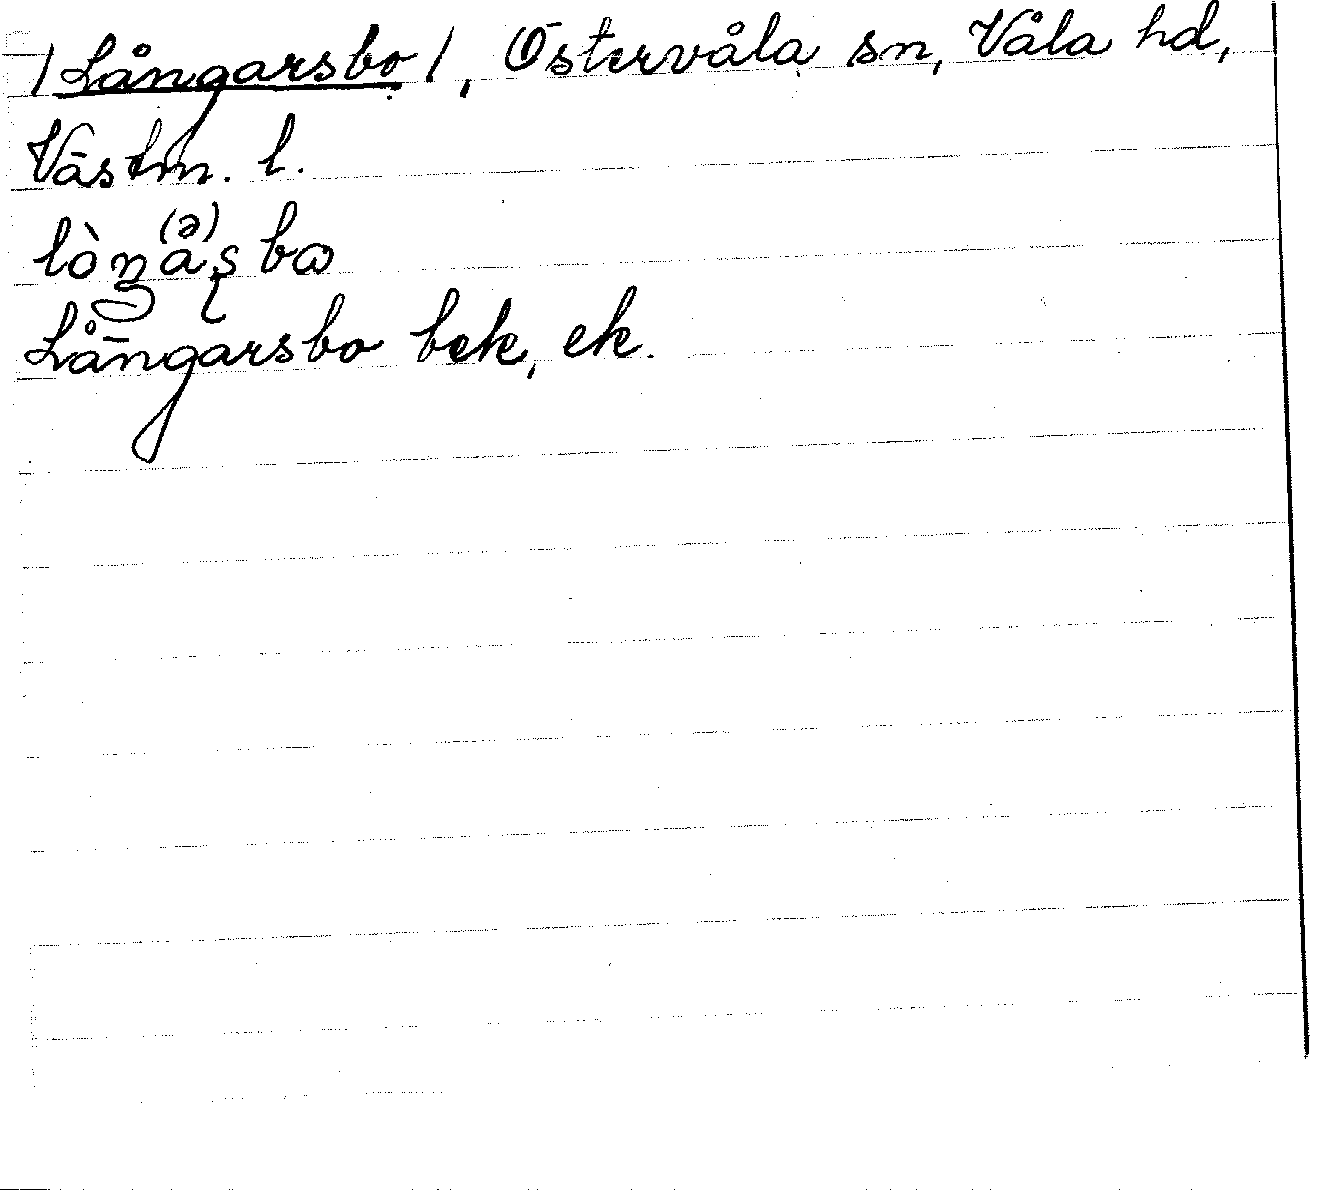 /Långarsbo/, Östervåla sn, Våla hd,
Västm. l.
lòŋå(ə)ʂbɷ
Långarsbo bek, ek.